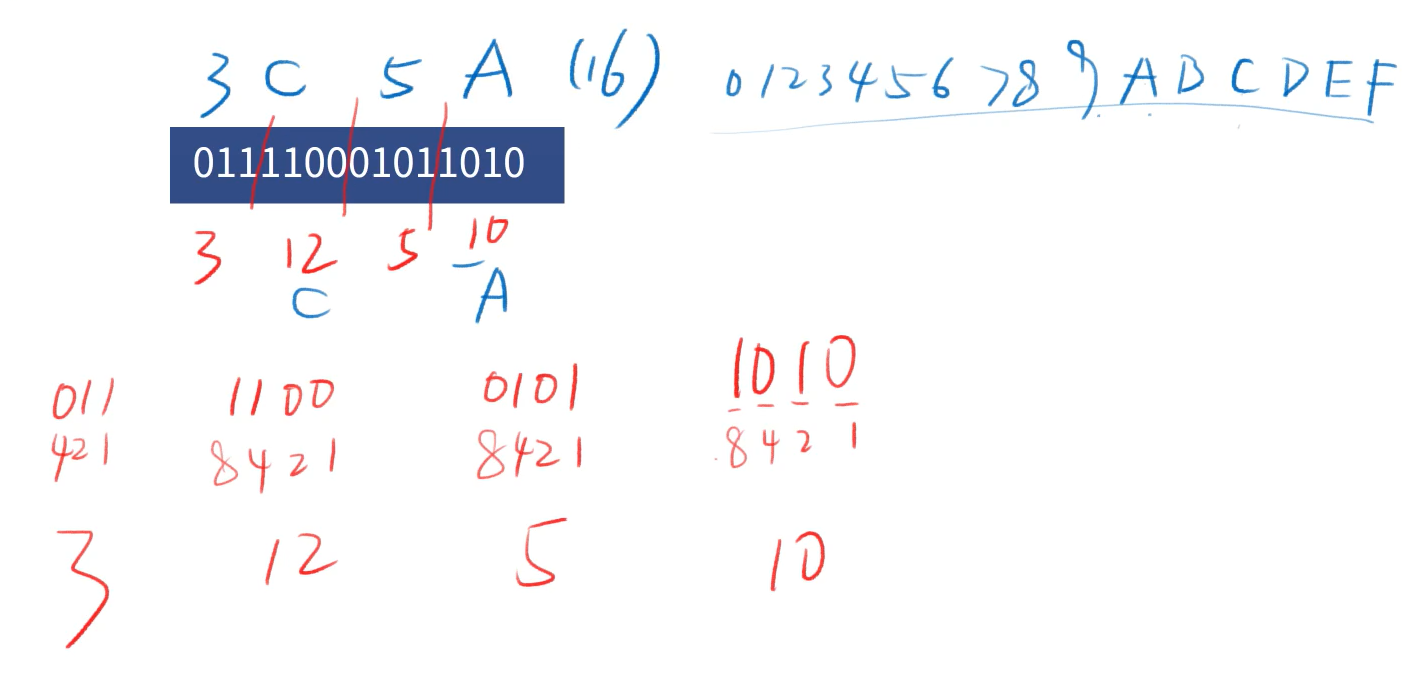 3 C 5 A (16) 0 1 2 3 4 5 6 7 8 9 A B C D E F
011110001011010
3 12 5 10
C A
011 1100 0101 1010
421 8421 8421 8421
3 12 5 10